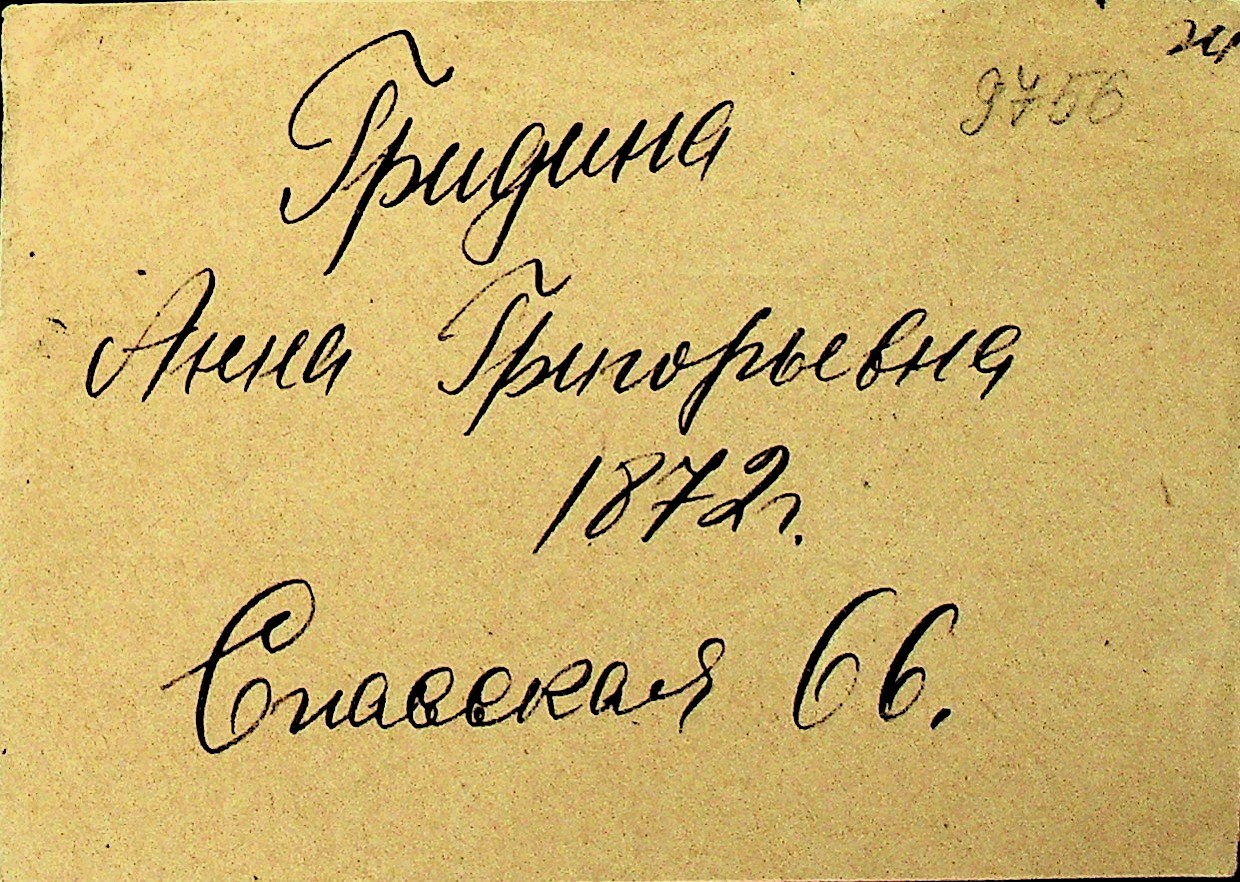 9756
Гридина
Анна Григорьевна
1872г.
Спасская 66.